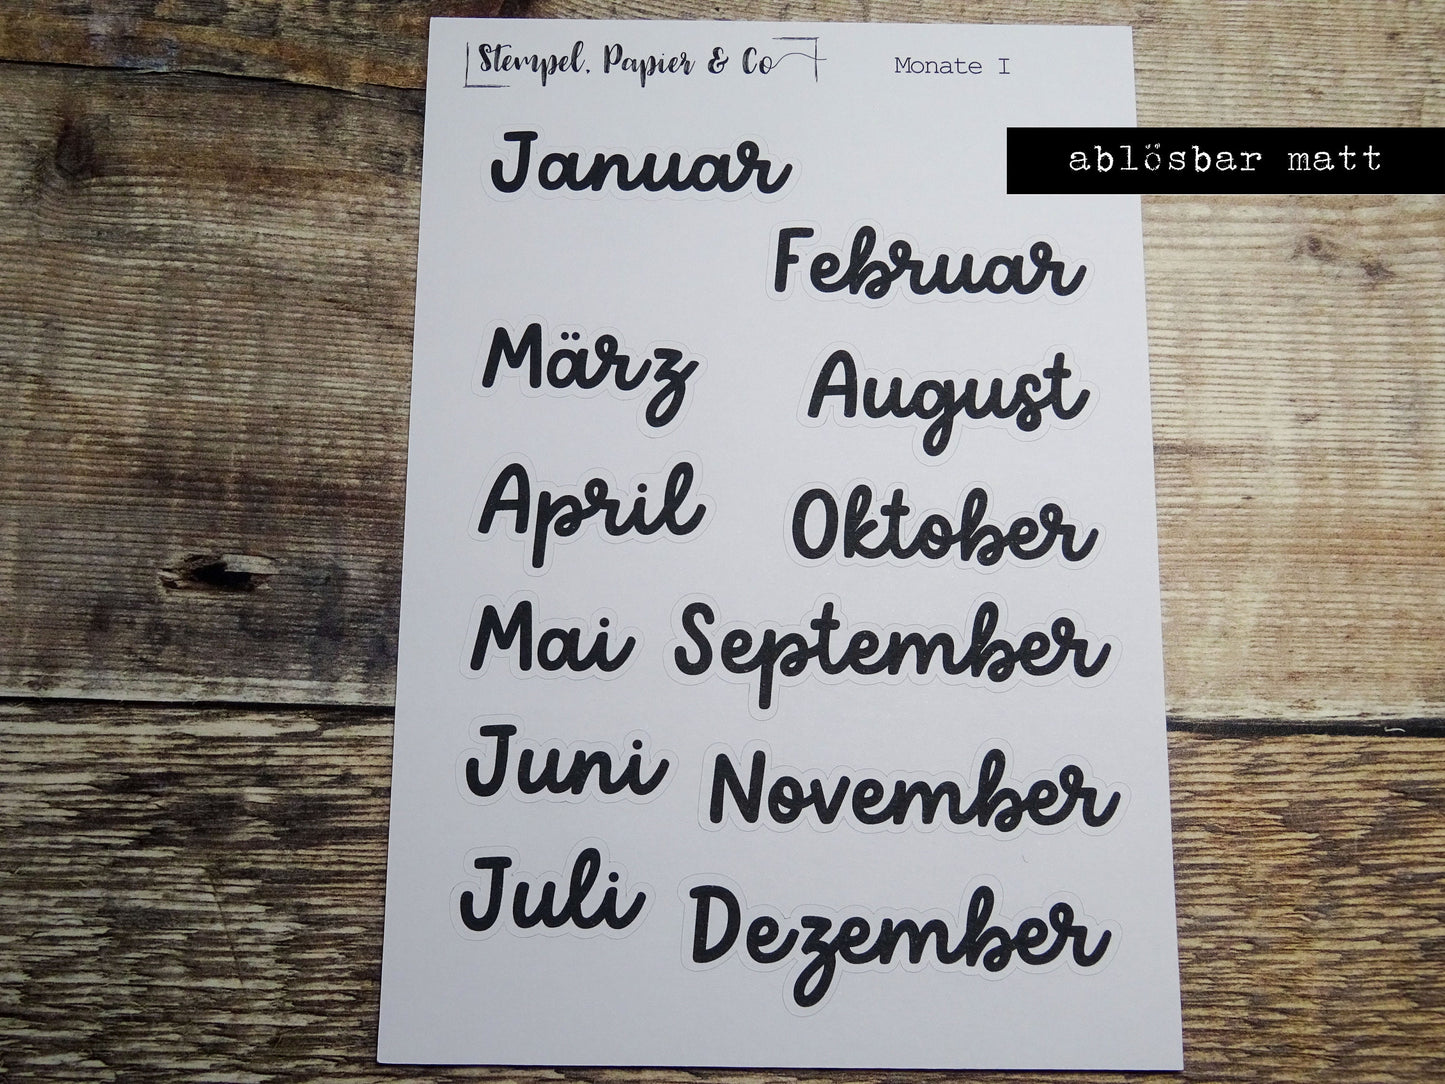 Stempel, Papier & Co
Monate I
ablösbar matt
Januar
Februar
März
August
April
Oktober
Mai
September
Juni
November
Juli
Dezember